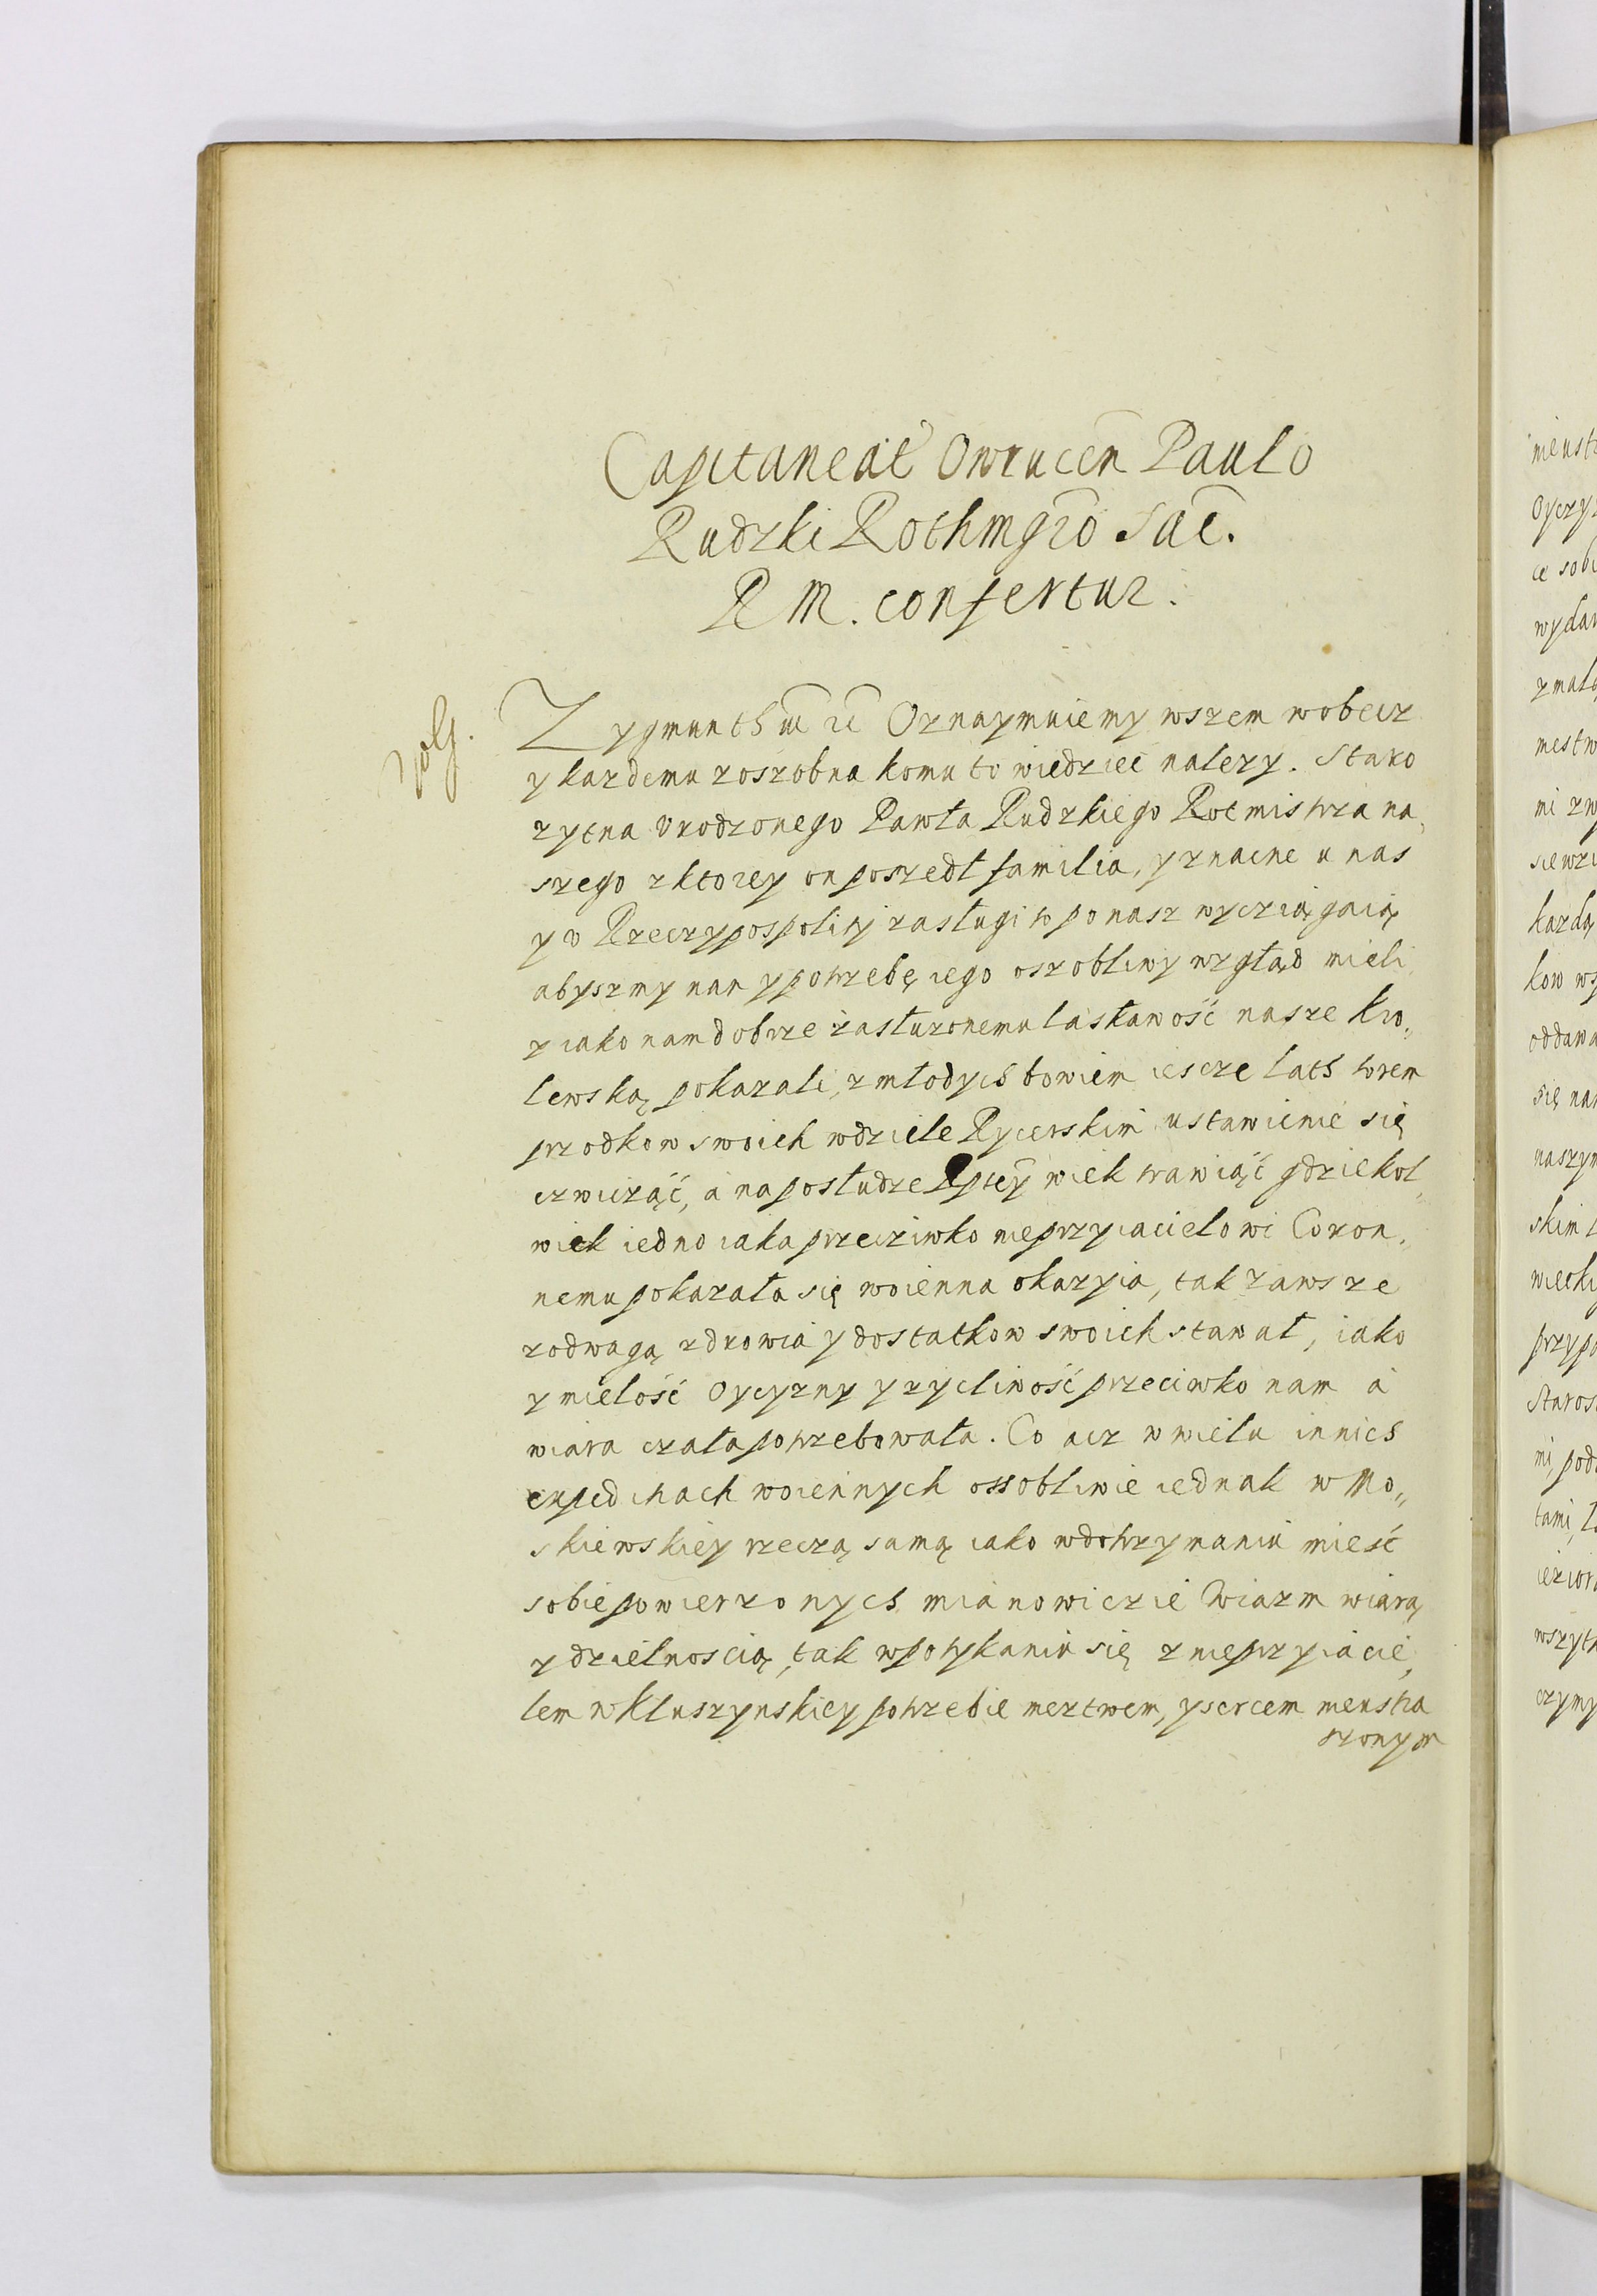 Capitaneat Owrucen Paulo
Rudzki Rothmgro Sac.
R M. confertur.
Zygmunth III etc Oznaymuiemy wszem wobecz
y kazdemu zoszobna komu to wiedziec nalezy. Staro
zytna Urodzonego Pawła Rudzkiego Rotmistrza na,
szego z ktorey on poszedł familia, y znacne u nas
y v Rzeczypospolity zasługi to po nasz wycziągaią
abyszmy nan y potrzebę iego oszobliwy wzgłąd mieli
y iako nam dobrze zasłuzonemu łaskawość nasze kro,,
lewską pokazali, z młodych bowiem iescze lath torem
przodkow swoich wdziele Rycerskim ustawicnie się
czwicząć, a na posłudze Rptey wiek trawiąć gdziekol,,
wiek iedno iaka przecziwko nieprzyiacielowi Coron,,
nemu pokazała się woienna okazyia, tak zawsze
zodwagą zdrowia y dostatkow swoich stawał, iako
y miełość Oyczyzny y zycliwość przeciwko nam a
wiara czała potrzebowała. Co acz w wielu innich
expedithach woiennych ossobliwie iednak w Mo,,
skiewskiey rzeczą samą iako wdotrzymaniu mieść
sobie powierzonych mianowiczie Wiazm wiarą
y dzielnoscią, tak wpotykaniu się z nieprzyiacie,
lem w Kłuszynskiey potrzebie meztwem, y sercem neustra
szonym